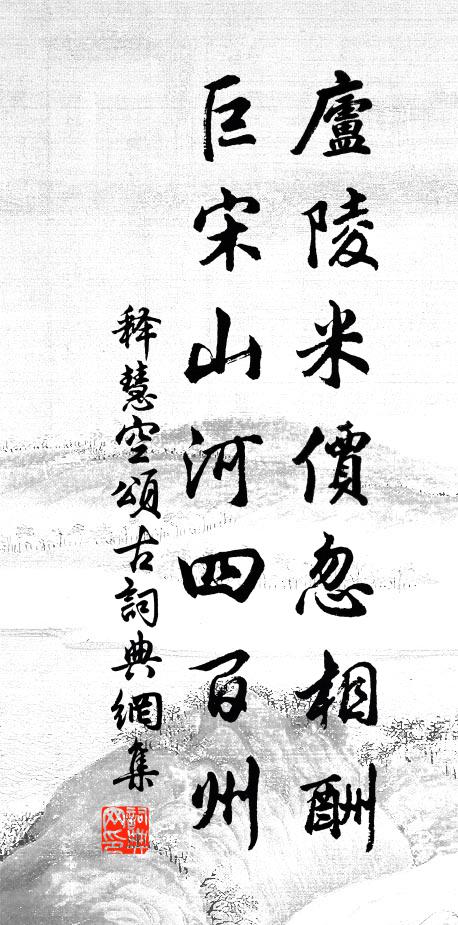 廬陵米價忽相酬
巨宋山河四百州
释慧空頌古詞典網集